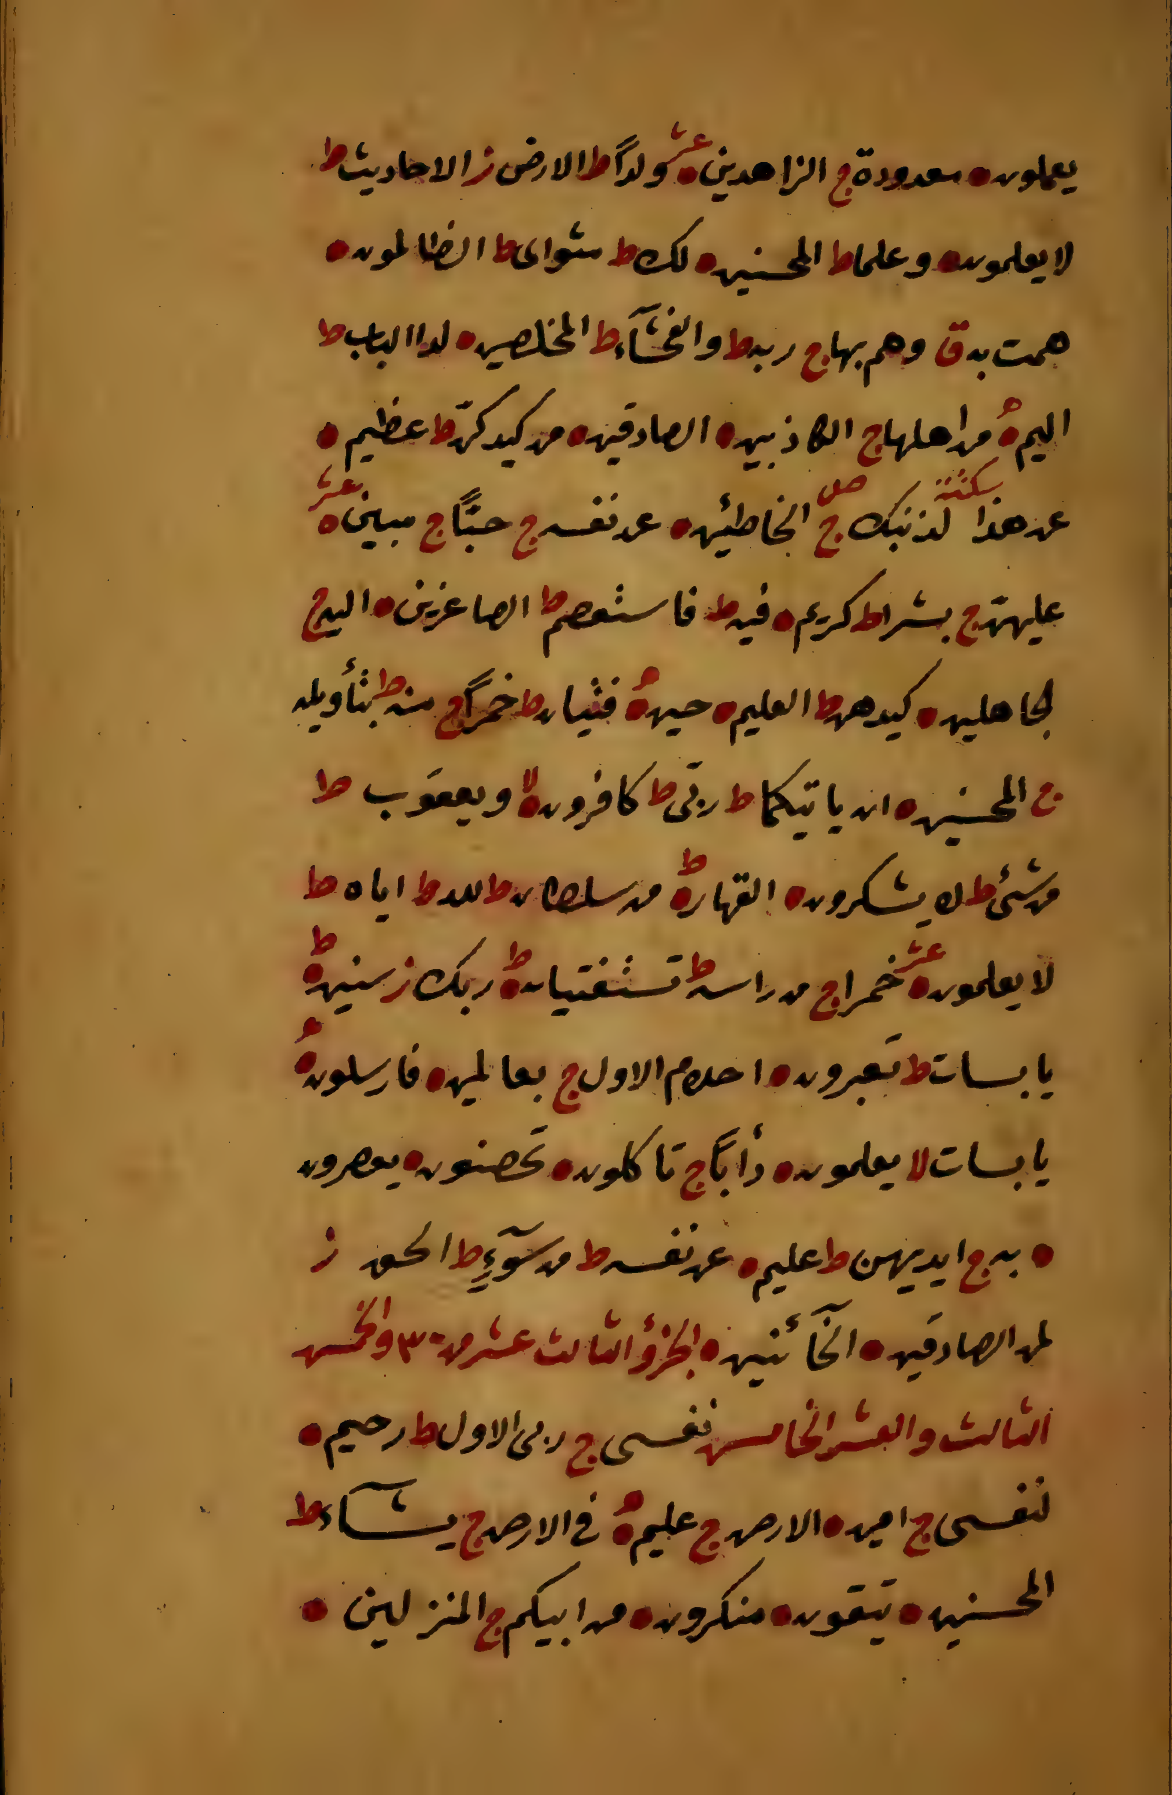 يعملون ۰ معدودة ج الزاهدين ۰ عشر ولداً ط الارض ز الاحاديث ط
لا يعلمون ۰ وعلما ط المحسنين ۰ لك ط مثواى ط الظالمون ۰
همت به ق وهم بها ج ربه ط والفحشآء ط المخلصين ۰ لدا الباب ط
اليم ۰ من اهلها ج الكاذبين ۰ الصادقين ۰ من كيدكنّ ط عظيم ۰
عن هذا سكتة لذنبك ج صل الخاطئين ۰ عن نفسه ج حبّاً ج مبين ۰ عشر
عليهنّ ج بشرا ط كريم ۰ فيه ط فاستعصم ط الصاغرين ۰ اليه ج
الجاهلين ۰ كيدهن ط العليم ۰ حين ۰ فتيان ط خمراً ج منه ط بتأويله
ج المحسنين ۰ ان ياتيكما ط ربّى ط كافرون ۰ لا ويعقوب ط
من شئ ط لا يشكرون ۰ القهار ۰ ط من سلطان ط لله ط اياه ط
لا يعلمون ۰ عشر خمرا ج من راسه ط تستفتيان ۰ ط ربك ز سنين ۰ ط
يابسات ط تعبرون ۰ احلام الاول ج بعالمين ۰ فارسلون ۰
يابسات لا يعلمون ۰ دأباً ج تاكلون ۰ تحصنون ۰ يعصرون
۰ به ج ايديهن ط عليم ۰ عن نفسه ط من سوٓءٍ ط الحق ز
لمن الصادقين ۰ الخآئنين ۰ الجزؤ الثالث عشر من ٣٠ والخمس
الثالث والعشر الخامس نفسى ج ربى الاول ط رحيم ۰
لنفسى ج امين ۰ الارض ج عليم ۰ فى الارض ج يشآء ط
المحسنين ۰ يتقون ۰ منكرون ۰ من ابيكم ج المنزلين ۰